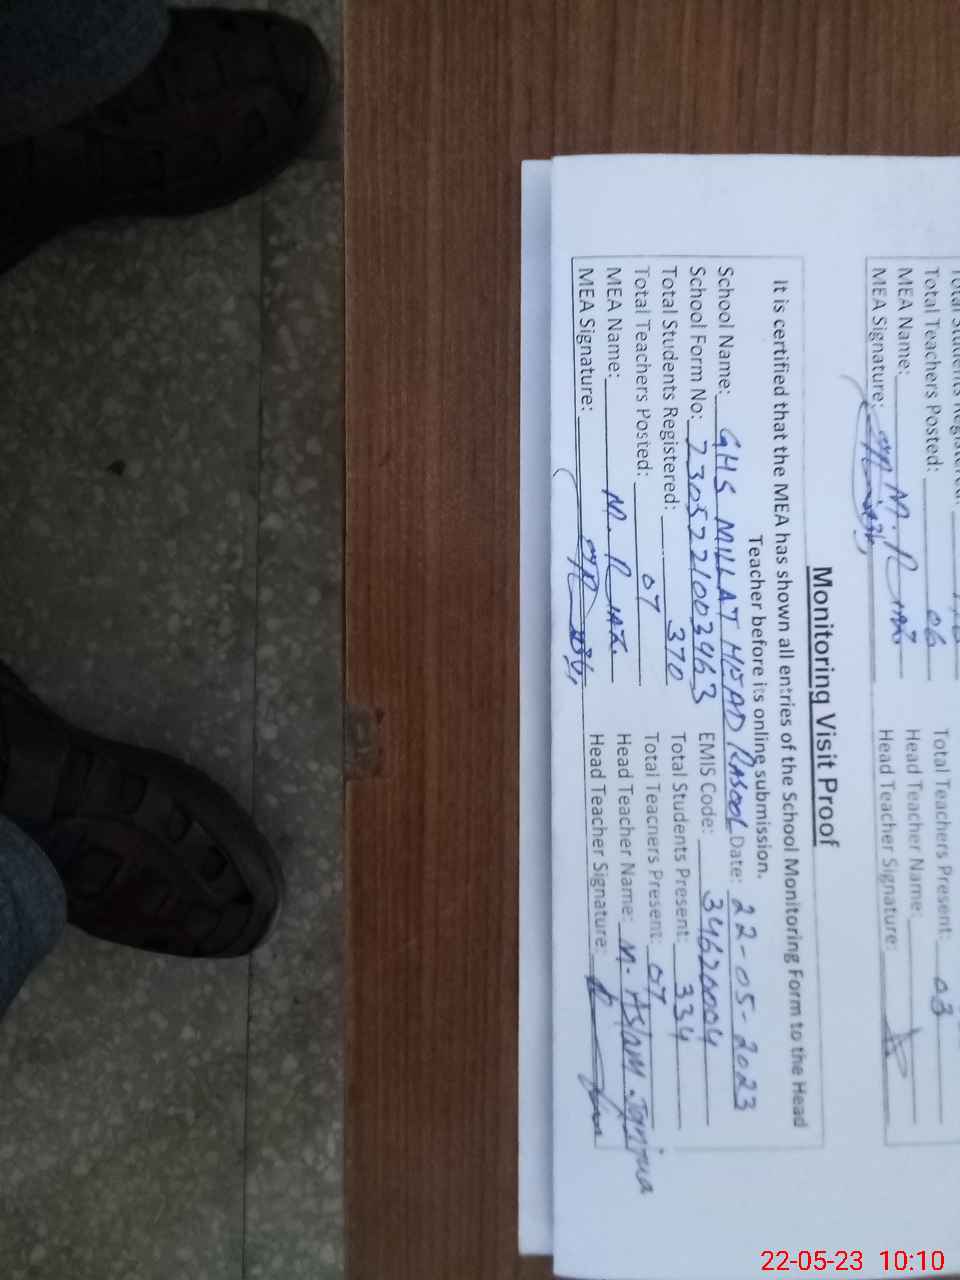 Total Teachers Posted: 06 Total Teachers Present: 03
MEA Name: M. Riaz Head Teacher Name:
MEA Signature: Head Teacher Signature:
Monitoring Visit Proof
It is certified that the MEA has shown all entries of the School Monitoring Form to the Head
Teacher before its online submission.
School Name: GHS MILLAT RASOOL Date: 22-05-2023
School Form No: 2305221003463 EMIS Code: 34620004
Total Students Registered: 370 Total Students Present: 334
Total Teachers Posted: 07 Total Teachers Present: 07
MEA Name: M. Riaz Head Teacher Name: M. Aslam Janjua
MEA Signature: Head Teacher Signature:
22-05-23 10:10